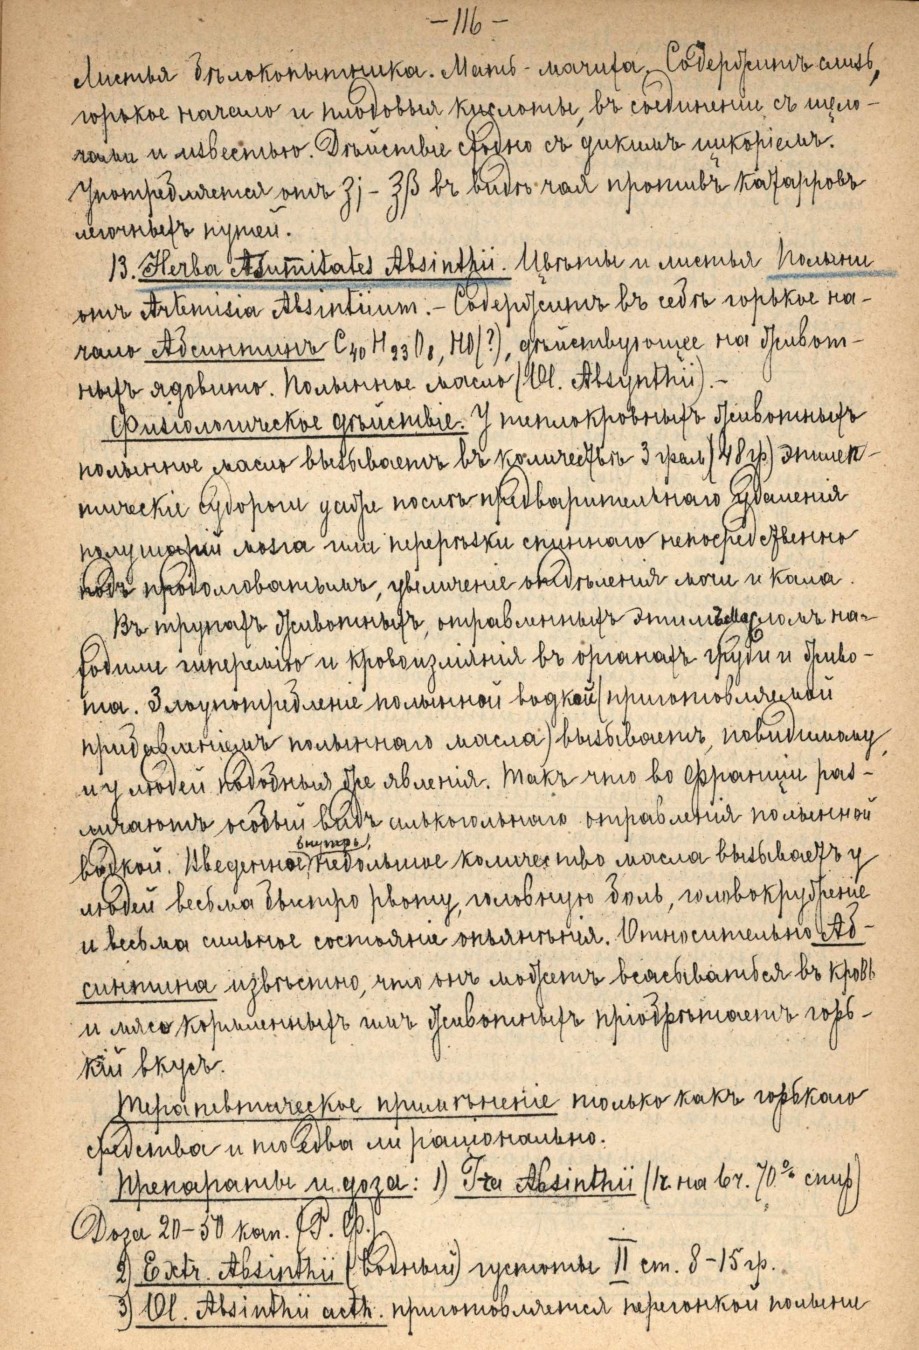 -116-
Листья бѣлокопытника. Мать-мачиха. Содержитъ слизь,
горькое начало и плодовыя кислоты, въ соединеніи съ щело-
чами и известью. Дѣйствіе сходно съ дикимъ цикоріемъ.
Употребляется отъ ʒj - ʒβ въ видѣ чая противъ катарровъ
легочныхъ путей.
13. Herba Asumitates Absinthii. Цвѣты и листья Полыни
отъ Artemisia Absintiium. - Содержитъ въ себѣ горькое на-
чало Абсинтинъ C40 H23 O8, HO(?), дѣйствующее на живот-
ныхъ ядовито. Полынное масло (Ol. Absynthii). -
Физіологическое дѣйствіе. У теплокровныхъ животныхъ
полынное масло вызываетъ въ количествѣ 3 грам (48 гр) эпилеп-
тическіе судороги даже послѣ предварительнаго удаленія
полушарій мозга или перерѣзки спиннаго непосредственно
подъ продолговатымъ, увеличеніе отдѣленія мочи и кала.
Въ трупахъ животныхъ, отравленныхъ этимъ масломъ на-
ходили гиперемію и кровоизліянія въ органахъ груди и живо-
та. Злоупотребленіе полынной водкой (приготовляемой
прибавленіемъ полыннаго масла) вызываетъ, повидимому,
и у людей подобныя же явленія. Такъ что во Франціи раз-
личаютъ особый видъ алькогольнаго отравленія полынной
водкой. Введенное внутрь, небольшое количество масла вызываетъ у
людей весьма быстро рвоту, головную боль, головокруженіе
и весьма сильное состояніе опьянѣнія. Относительно Аб-
синтина извѣстно, что онъ можетъ всасываться въ кровь
и мясо кормленныхъ имъ животныхъ пріобрѣтаетъ горь-
кій вкусъ.
Терапевтическое примѣненіе только какъ горькаго
средства и то едва ли раціонально.
Препараты и доза: 1) T-ra Absinthii (1ч. на 6ч. 70% спир)
Доза 20-50 кап. (Р. Ф.)
2) Extr. Absinthii (водный) густоты II ст. 8-15 гр.
3) Ol. Absinthii aeth. приготовляется перегонкой полыни